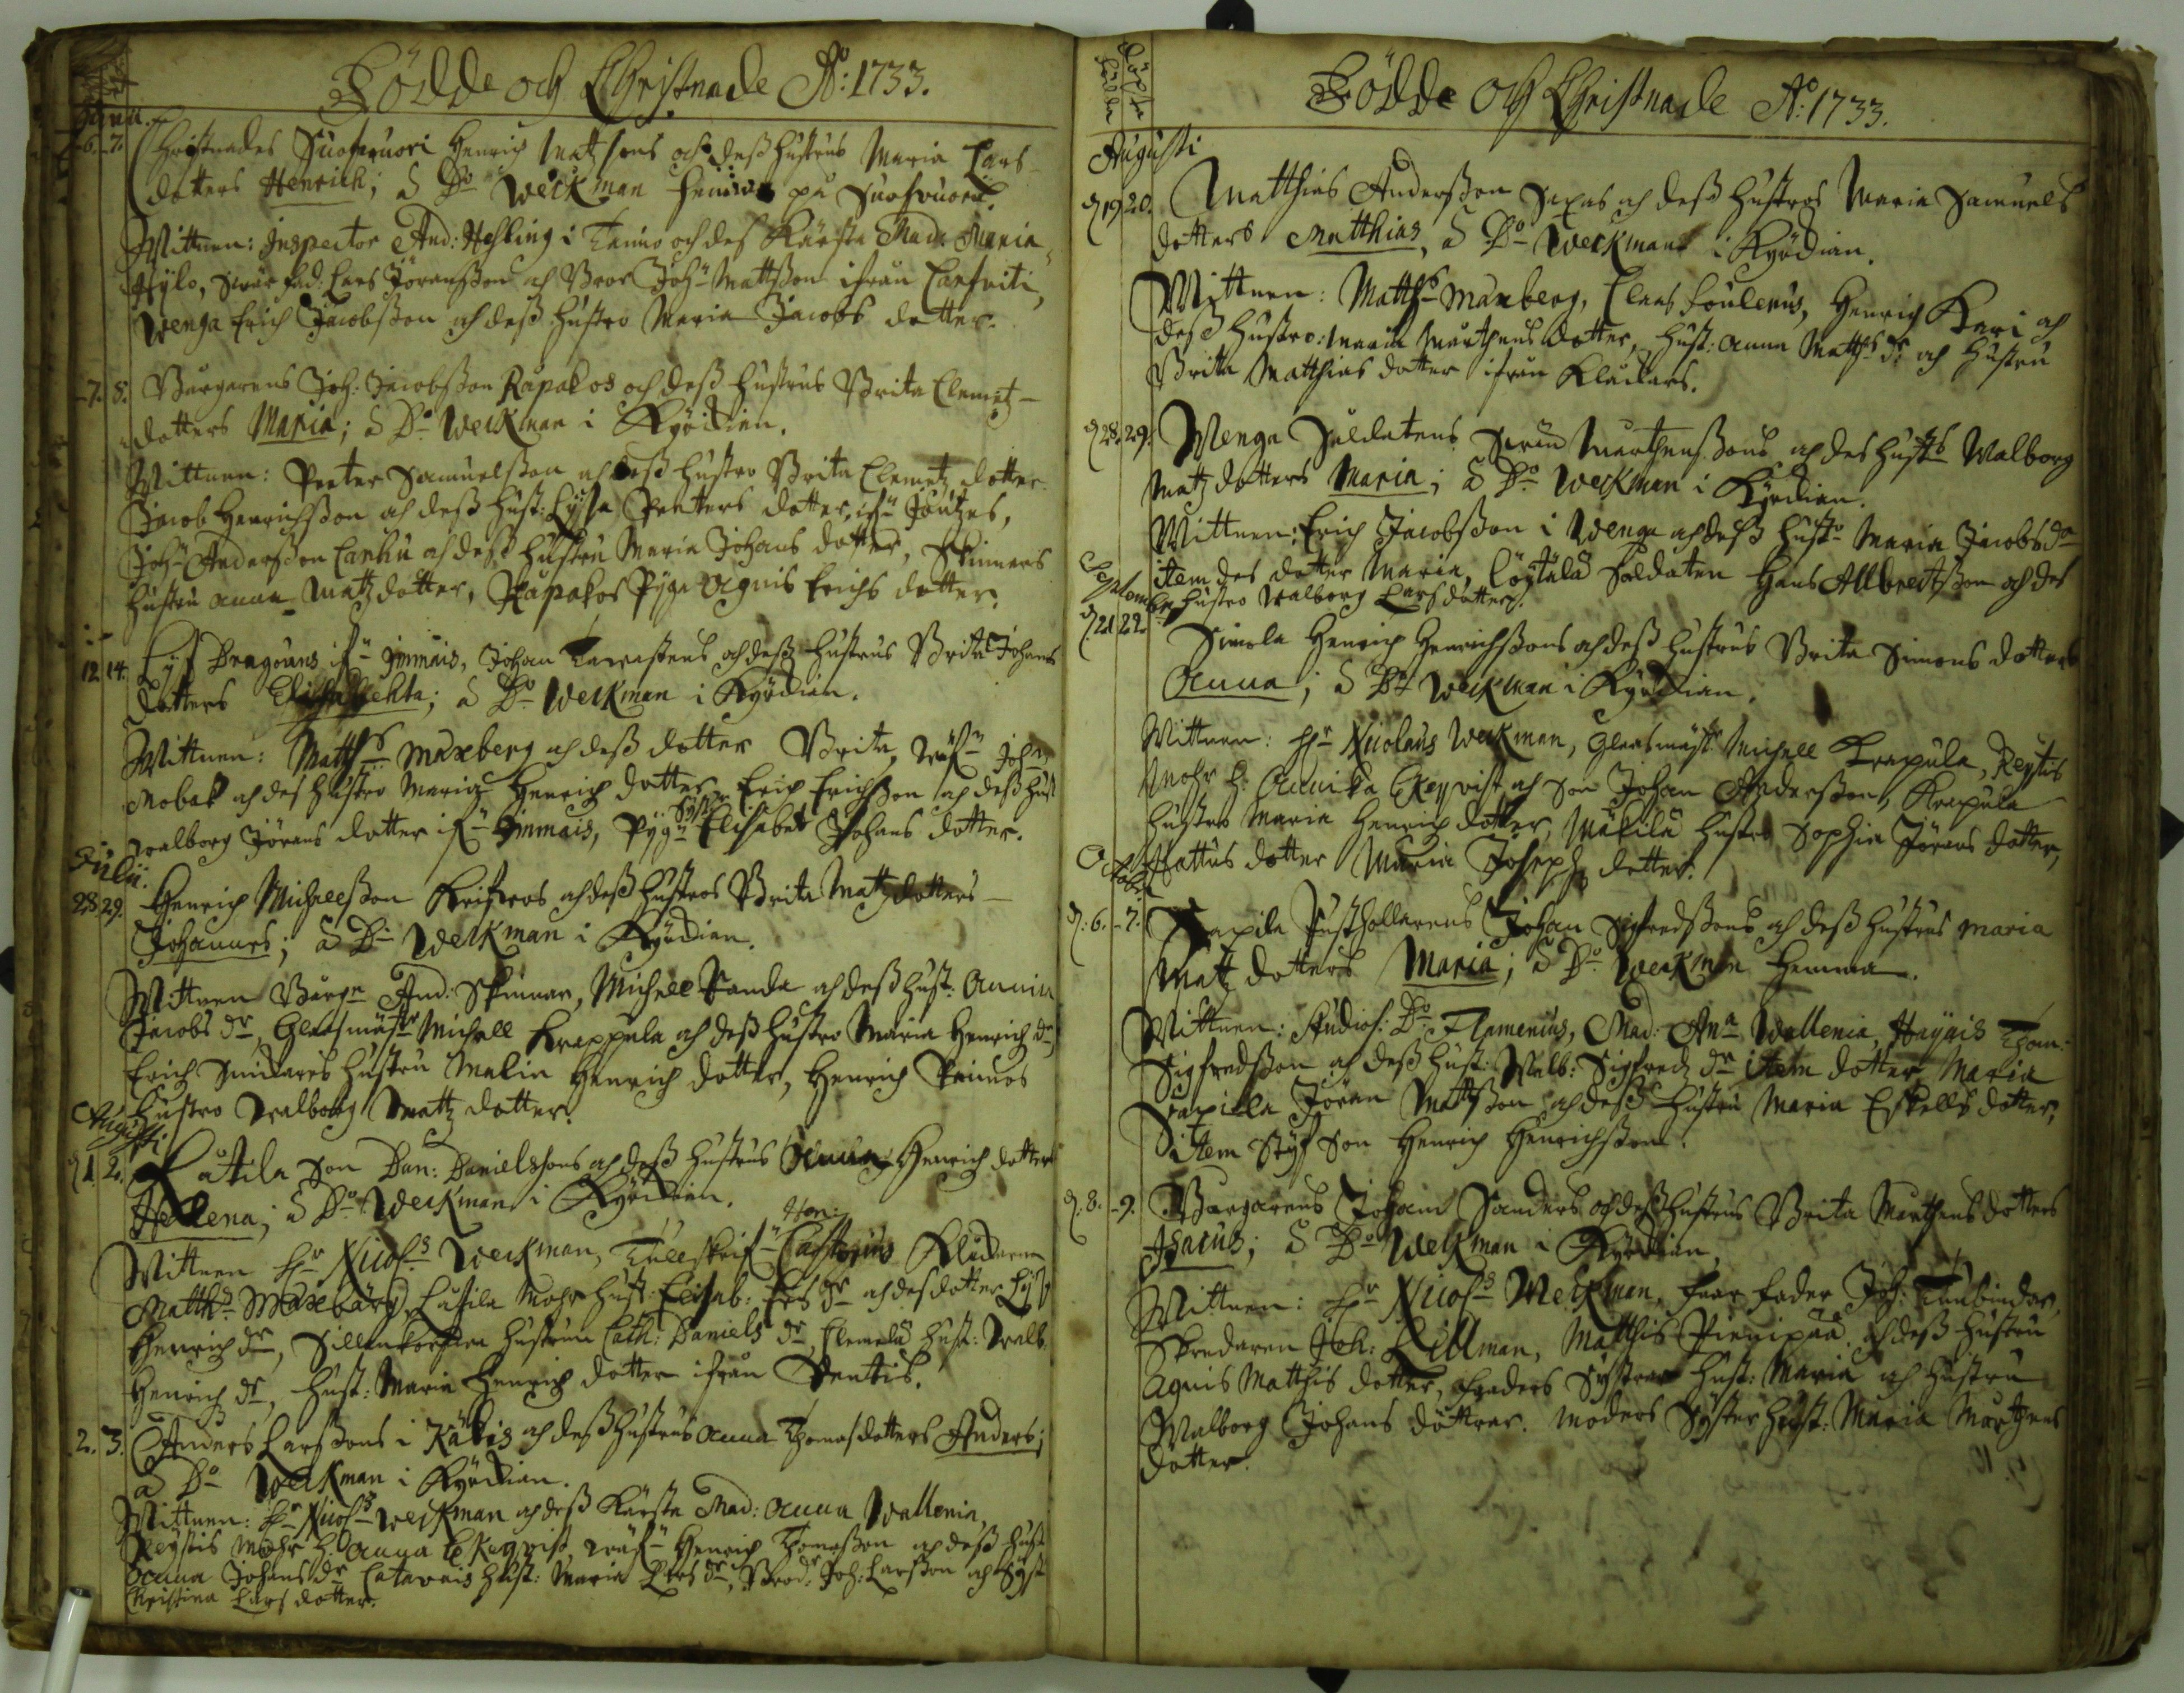 Födde och Christnade Ao: 1733.
Janu.
6. 7. Christnades Suosuuori Henrich Matzsons och deß hustrus Maria Lars
dotters Henrich; a Do Weckman hemma på Suosuuori.
Wittnen: Inspector And: Hehling i Tamio och des Kärsta Mad: Maria
Hylo, Swär fad: Lars Jöranßon och Bror Joh: Mattßon ifrån
Wenga Erich Jacobßon och deß hustro Maria Jacobs dotter.
7. 8. Burgarens Joh: Jacobßon Rapakos och deß hustrus Brita Clemetz
dotters Maria; a Do Weckman i Kyrckian.
Wittnen: Peeter Samuelßon och deß hustro Brita Clemetz dotter
Jacob Henrichßon och deß hust: Lysa Peeters dotter,
Joh: Anderßon Lanku och deß hustru Maria Johans dotter, Skinnars
hustru Anna Matz dotter, Rapakos Pyga Agnis Erichs dotter.
12 14. Lijf Dragouns ifrån Immais, Johan Tawastens och deß hustrus Brita Johans
dotters Elisabetha; a Do Weckman i Kyrckian.
Wittnen: Matths Maxberg och deß dotter Brita, Joh:
Mobak och des hustro Maria Henrich dotter Erich Erichßon och deß hust
Walborg Jörans dotter ifrån Immais, Pyga Syster Elisabet Johans dotter.
Julii.
28 29. Henrich Michelßon Kristros och deß hustros Brita Matz dotters
Johannes; a Do Weckman i Kyrckian.
Wittnen Burgn And: Skinnar, Michell Panda och deß hust: Annia
Jacobs dr, Glasmästr Michell Krappula och deß hustro Maria Henrich dr
Erich Smidares hustru Malin Henrich dotter, Henrich Prinnos
hustro Walborg Matz dotter.
Augusti
d 1. 2. Lautila Son Dan: Danielssons och deß hustrus Anna Henrich dotters
Hellena; a Do Weckman i Kyrckian.
Wittnen Hr Nicols Weckman, Tulleskrifn Hen: Castorius
Matths Maxbärg, Lutila Mohr hust: Elisab: Ers dr och des dotter Lys
Henrich dr, hustrun Cath: Daniels dr, Clemelä hust: Walb.
Henrich dr, hust: Maria Henrich dotter ifrån Pentis.
2. 3. Anders Larßons i Käkis och deß hustrus Anna Thomas dotters Anders;
a Do Weckman i Kyrckian.
Wittnen: Hr Nicols Weckman och deß Kärsta Mad: Anna Wallenia,
Reystis Mohr h: Anna Ekeqvist, Henrich Thomaßon och deß hust
Anna Johans dr hust: Maria Lars dr, Brod: Joh: Larßon och Syst
Christina Lars dotter.
Födde och Christnade Ao: 1733.
Augusti
d 19 20. Matthias Anderßon Saxas och deß hustros Maria Samuels
dotters Matthias, a Do Weckman i Kyrckian.
Wittnen: Matths Maxberg, Claas Foulerus, Henrich Kari och
deß hustro: Maria Mårthens dotter, hust: Anna Matths dr och hustru
Brita Matthias dotter ifrån Kluckars.
d 28. 29. Wenga Soldatens Sven Mårthenßons och des hustrs Walborg
Matz dotters Maria; a Do Weckman i Kyrckian.
Wittnen: Erich Jacobßon i Wenga och deß hustro Maria Jacobs dr
item des dotter Maria, Löytälä Soldaten Hans Albrectßon och des
hustro Walborg Lars dotter.
Septembr
d 21 22. Simola Henrich Henrichßons och deß hustrus Brita Simons dotters
Anna; a Do Weckman i Kyrckian.
Wittnen: Hr Nicolaus Weckman, Glasmästr Michell Krapula, Reystis
Mohr h: Annika Ekeqvist och Son Johan Anderßon, Krapula
hustro Maria Henrich dotter, Mäkilä hustro Sophia Jörans dotter,
Hattus dotter Maria Josephs dotter.
Octobr
d: 6. 7. Sapila Rusthollarens Johan Sigfredßons och deß hustrus Maria
Matz dotters Maria; a Do Weckman hemma.
Wittnen: Studios: Do Flamenius, Mad: Ana Wallenia, Hayais Thom:
Sigfredßon och deß hust: Walb: Sigfredz dr item dotter Maria
Sapilla Jöran Mattßon och deß hustru Maria Eskells dotter,
item Styf Son Henrich Henrichßon.
d: 8. 9. Burgarens Johan Sanders och deß hustrus Brita Marthens dotters
Isacus; a Do Weckman i Kyrckian.
Wittnen: Hr Nicols Weckman, Faar fader Joh: Tunbindar,
Skredaren Joh: Lillman, Matthis Pienipää och deß hustru
Agnis Matthis dotter, faders Systrar hust: Maria och hustru
Walborg Johans döttrar. Moders Syster hust: Maria Marthens
dotter.